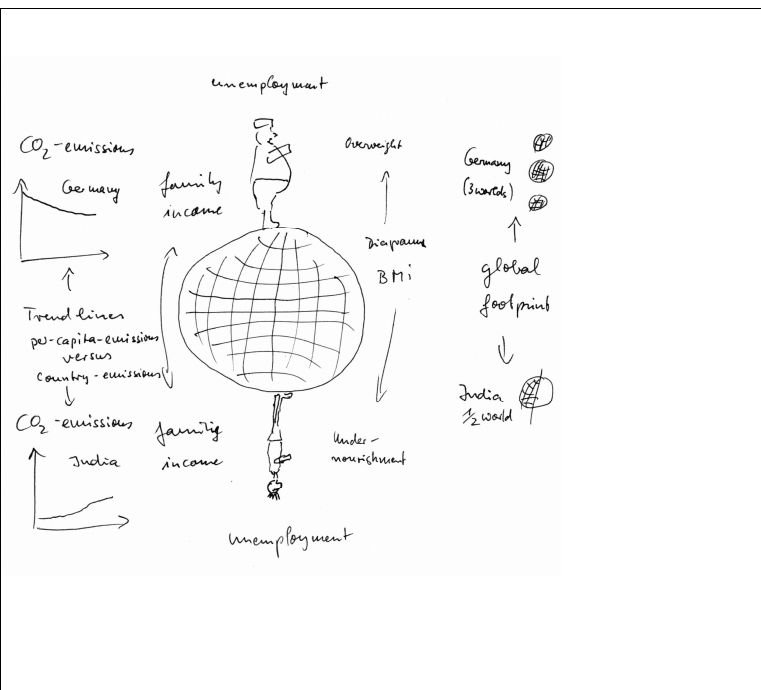 unemployment
CO2-emissions
Germany
family
income
Overweight
Germany
(3 worlds)
Diagrams
BMi
global
footprint
Trendlines
per-capita-emissions
versus
country-emissions
CO2-emissions
India
family
income
Under-
nourishment
India
1/2 world
unemployment